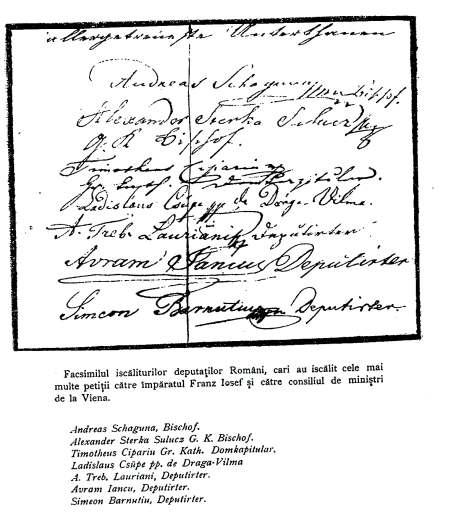 allergetreueste Unterthanen
Andreas Schaguna Bischof.
Alexander Sterka Sulucz
g. K Bischof.
Timotheus Cipariu
Gr. kath. Domkapitular.
Ladislaus Csüpe pp de Draga-Vilma.
A. Treb. Lauriani Deputirter
Avram Iancu Deputirter
Simeon Barnutiu Deputirter.
Facsimilul iscăliturilor deputaților Români, cari au iscălit cele mai
multe petiții către împăratul Franz Iosef și către consiliul de miniștri
de la Viena.
Andreas Schaguna, Bischof.
Alexander Sterka Sulucz G. K. Bischof.
Timotheus Cipariu Gr. Kath. Domkapitular.
Ladislaus Csüpe pp. de Draga-Vilma
A. Treb. Lauriani, Deputirter.
Avram Iancu, Deputirter.
Simeon Barnutiu, Deputirter.